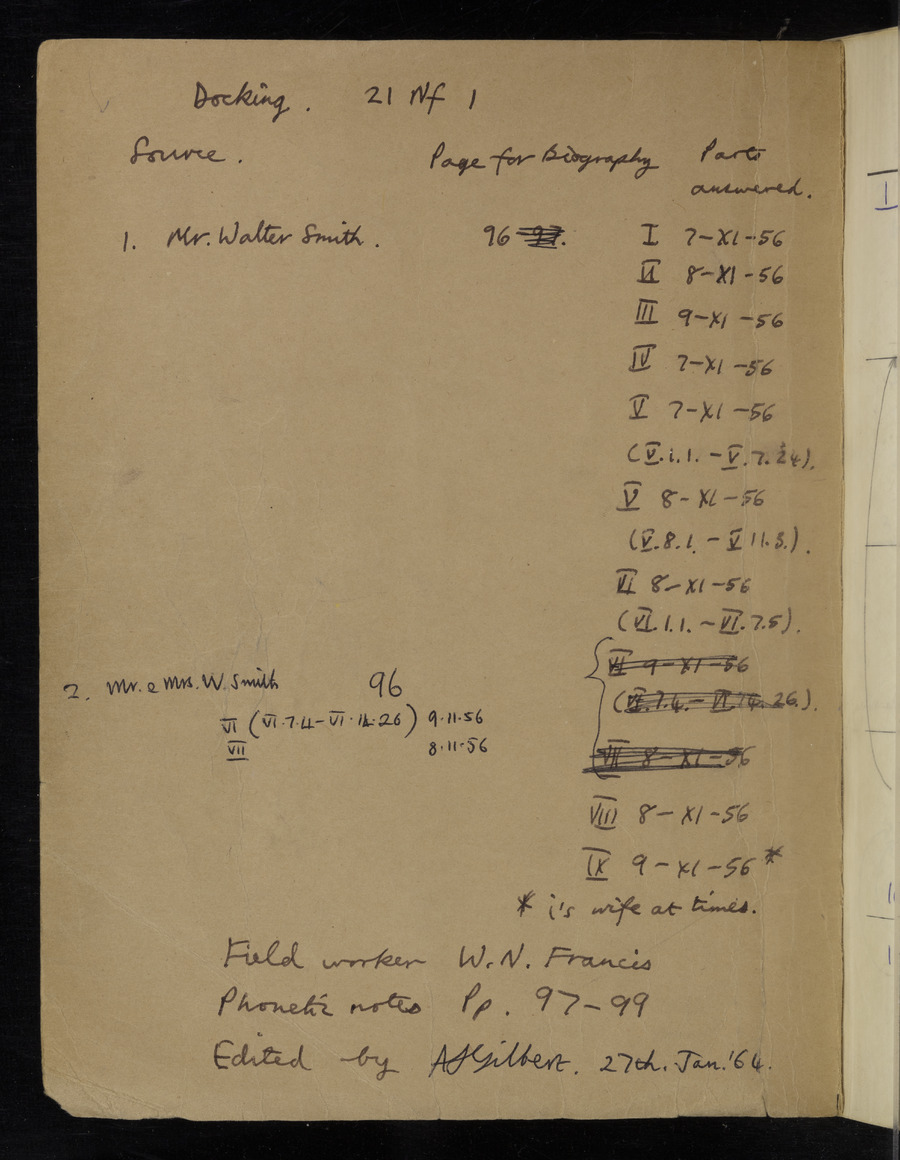 Docking. 21 Nf 1
Source. Page for Biography Parts
answered.
1. Mr. Walter Smith. 96 I 7-XI-56
II 8-XI-56
III 9-XI-56
IV 7-XI-56
V 7-XI-56
(V.1.1. - V.7.24).
V 8-XI-56
(V.8.1. - V 11.5.).
VI 8-XI-56
(VI.1.1. - VI.7.5).
VI 9-XI-56
(VI.7.4. - VI.14.26.).
2. Mr. & Mrs. W. Smith 96
VI (VI.7.4-VI.14.26) 9.11.56
VII 8.11.56
VII 8-XI-56
VIII 8-XI-56
IX 9-XI-56 *
* i's wife at times.
Field worker W. N. Francis
Phonetic notes Pp. 97-99
Edited by AJGilbert. 27th. Jan. '64.